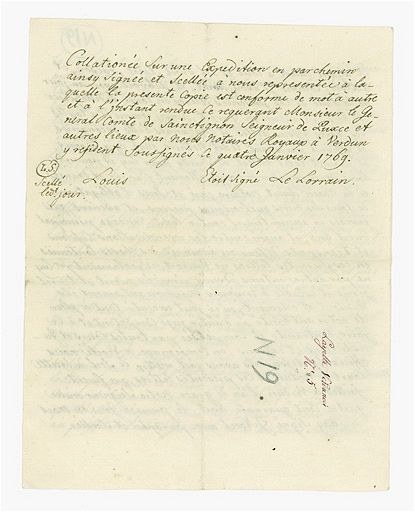 Collationée sur une Expedition en parchemin
ainsy signée et Scellée à nous representée à la-
quelle la presente Copie est conforme de mot à autre
et à l'instant rendue ce requerant Monsieur le Ge-
neral Comte de Sainctignon Seigneur de Puxe et
autres lieux par Nous Notaires Royaux à Verdun
y resident Soussignés le quatre Janvier 1769.
Louis Etoit signé Le Lorrain.
Scellé
led. jour.
N19
N.° 5